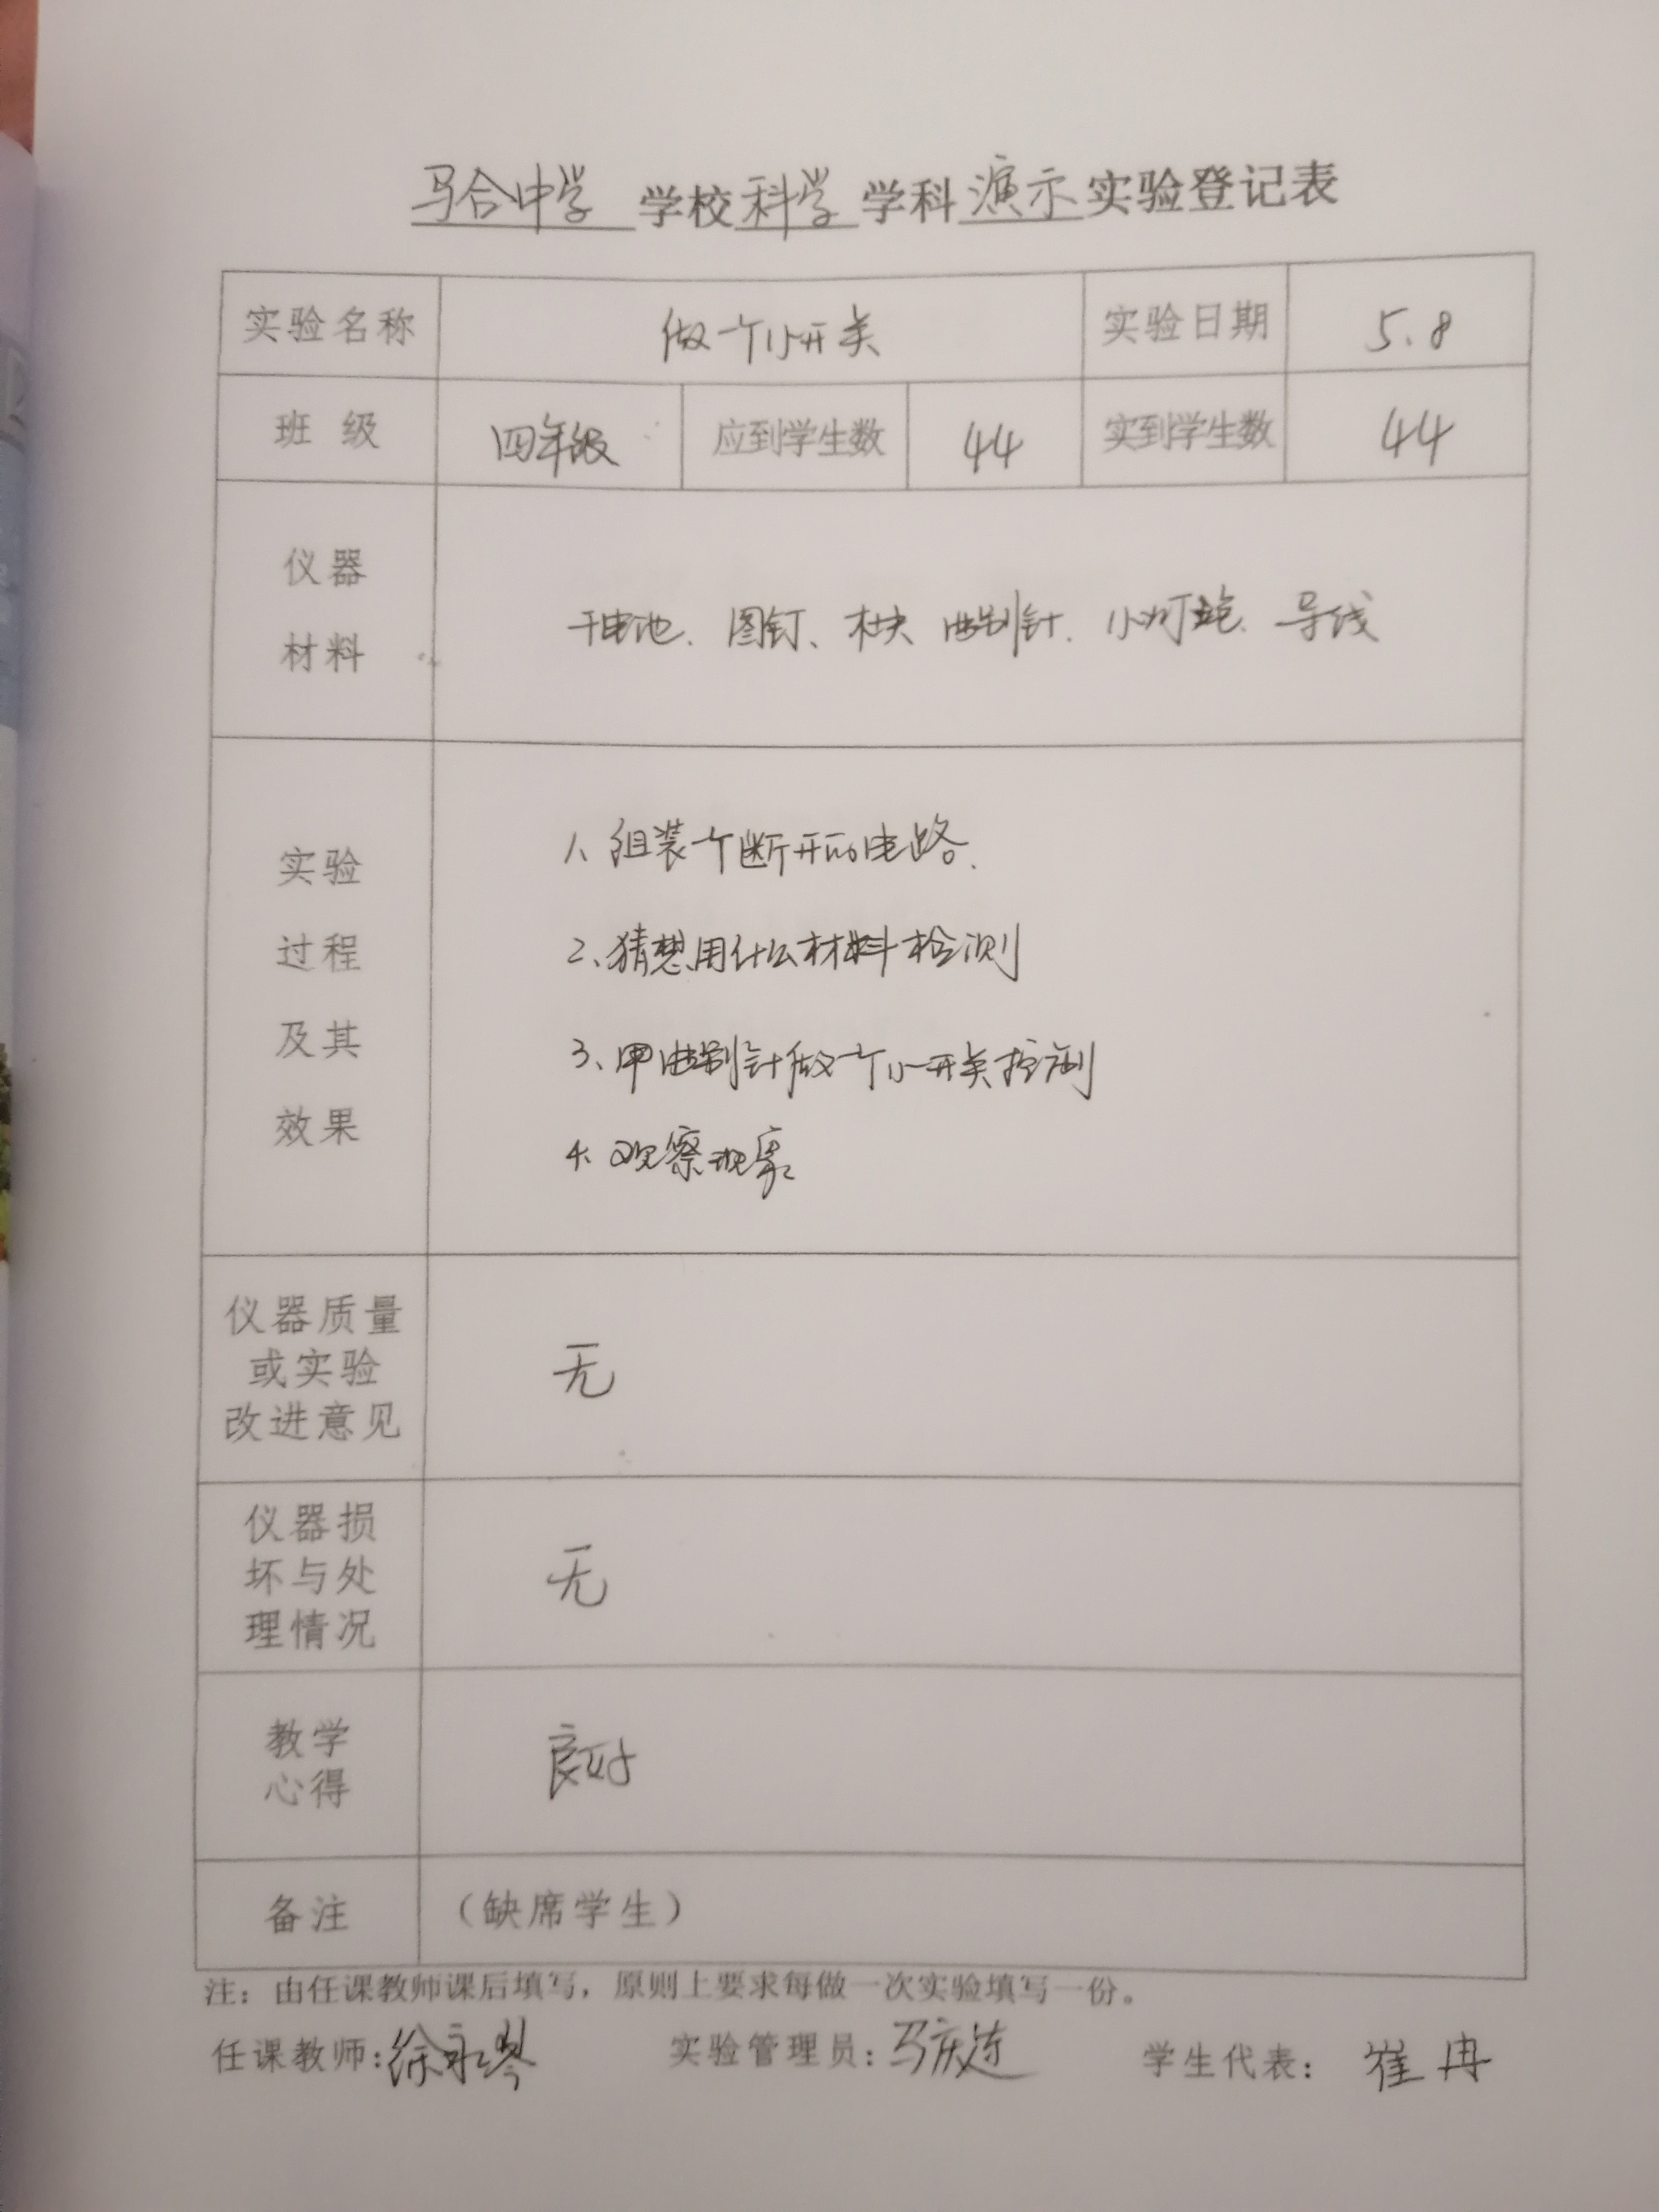 马合中学 学校 科学 学科 演示 实验登记表
实验名称 做一个小开关 实验日期 5.8
班 级 四年级 应到学生数 44 实到学生数 44
仪器
材料
干电池、图钉、木块 曲别针、小灯泡、导线
实验
过程
及其
效果
1、组装一个断开的电路、
2、猜想用什么材料检测
3、用曲别针做一个小开关控制
4、观察现象
仪器质量
或实验
改进意见
无
仪器损
坏与处
理情况
无
教学
心得
良好
备注 （缺席学生）
注：由任课教师课后填写，原则上要求每做一次实验填写一份。
任课教师：徐永琴 实验管理员：马庆 学生代表：崔冉